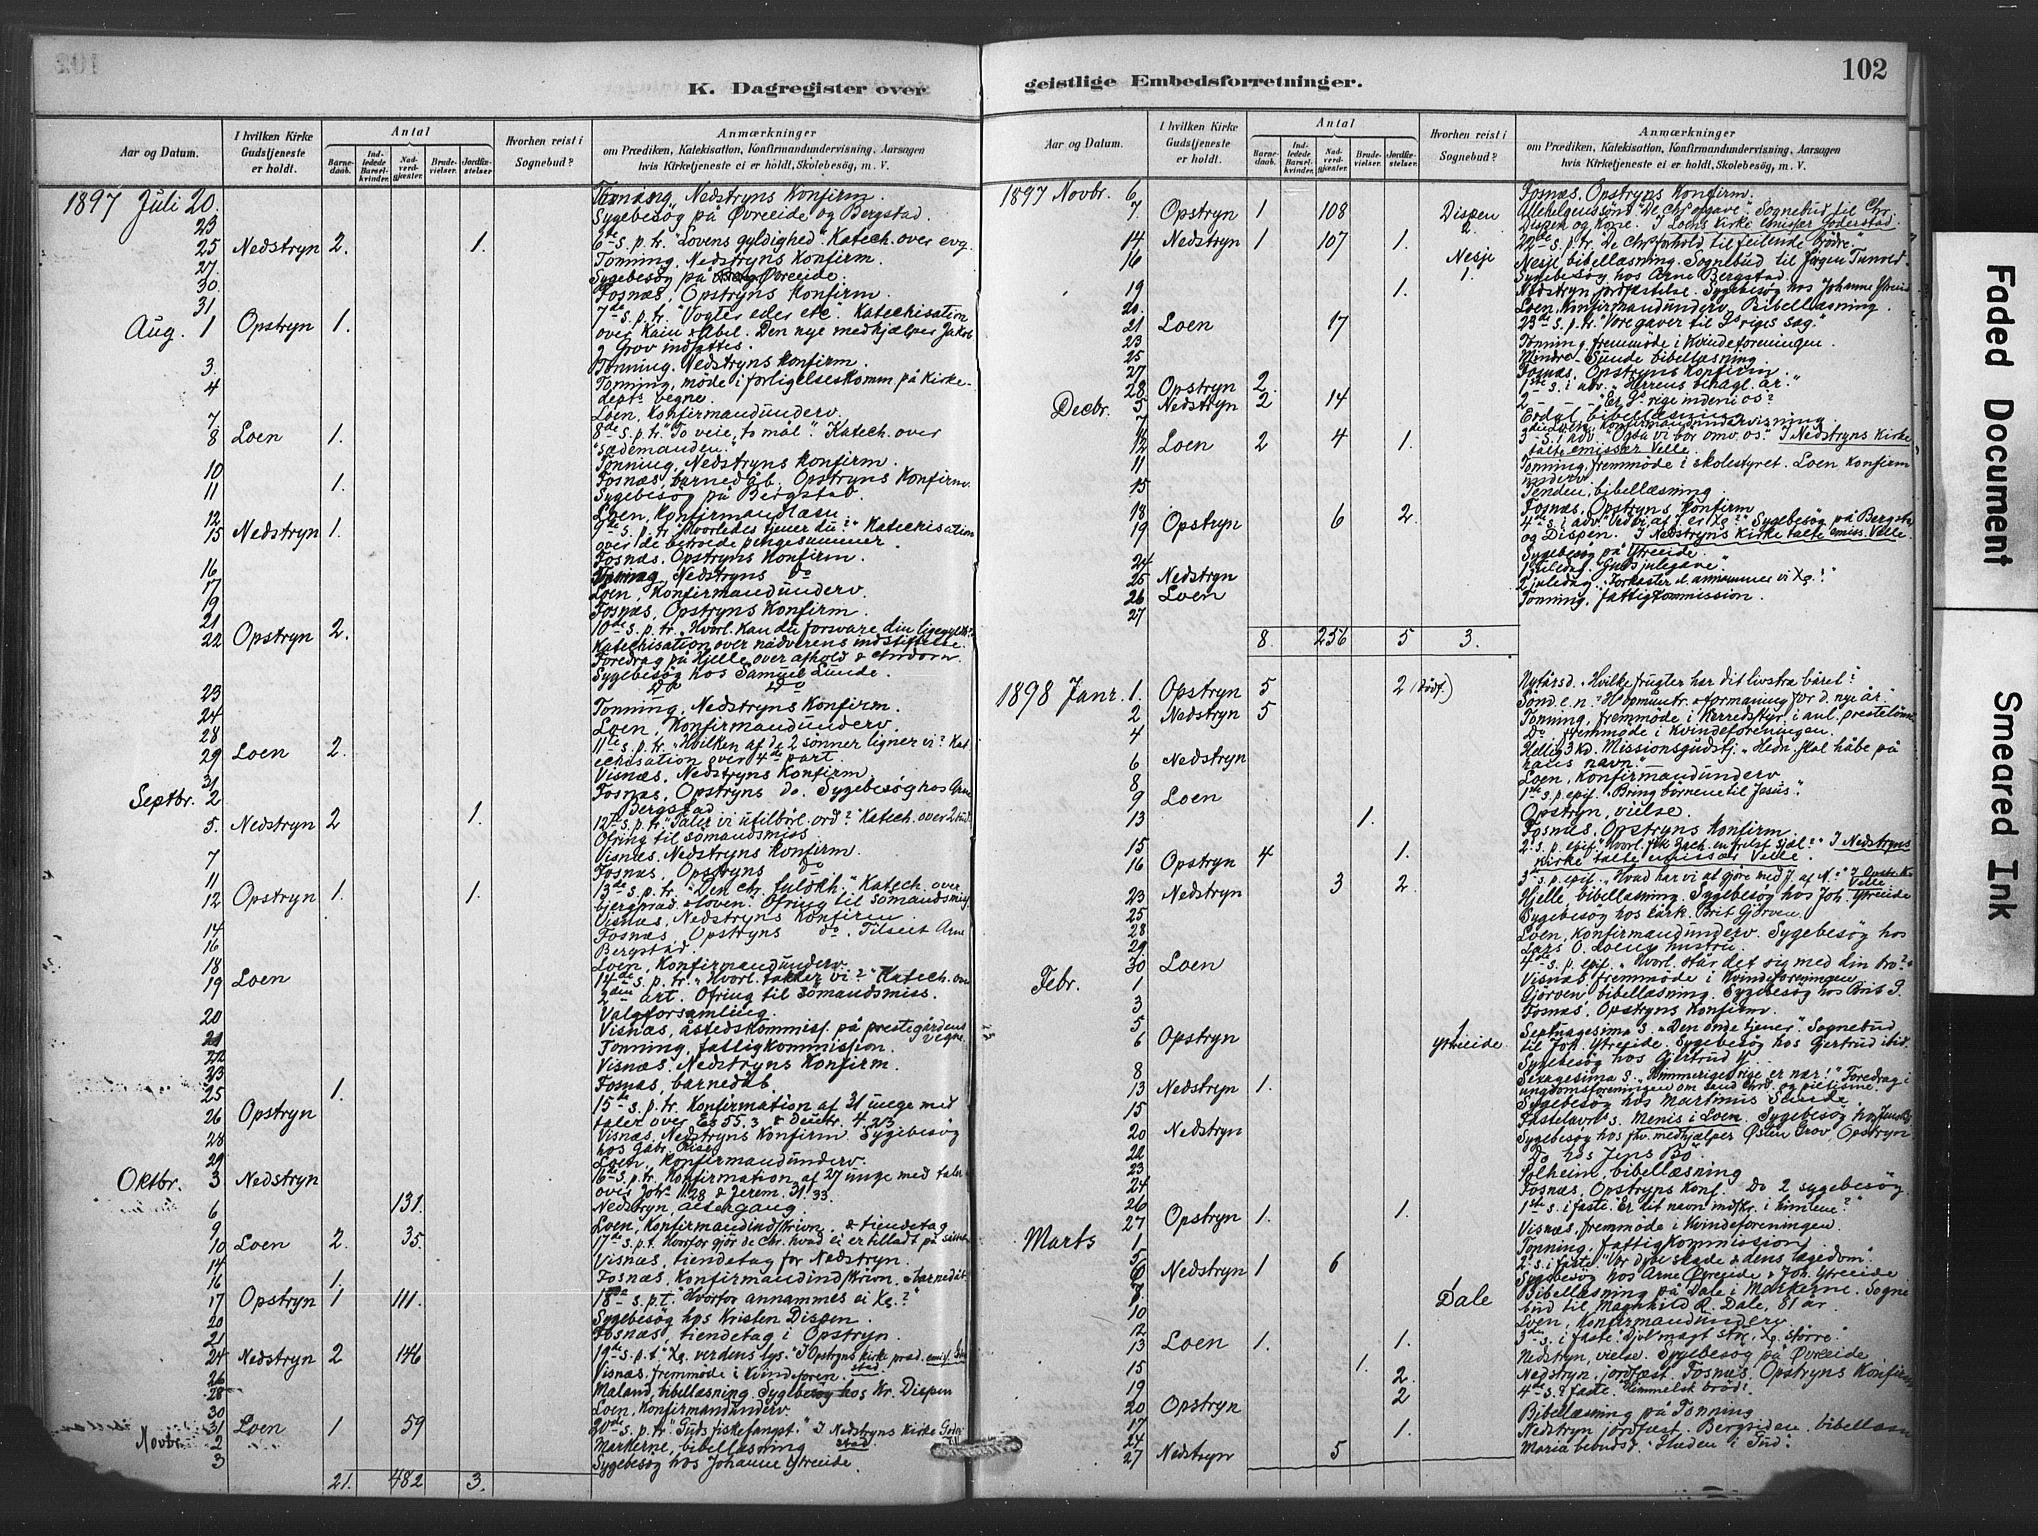 K. Dagregister over
Aar og Datum.
I hvilken Kirke Gudstjeneste er holdt.
Antal
Barnedaab.
Indledede Barselkvinder.
Nadverdgjæster
Brudevielser.
Jordfæstelser
Hvorhen reist i Sognebud?
Anmærkninger
om Prædiken, Katekisation, Konfirmandundervisning, Aarsagen
hvis Kirketjeneste ei er holdt, Skolebesøg, m. V.
1897 Juli 20. Tonning, Nedstryns Konfirm.
23 Sygebesøg på Øvreeide og Bergstad.
25 Nedstryn 2. 1. 6te s. p. tr. "Lovens gyldighed". Katech. over evg.
27. Tonning, Nedstryns Konfirm.
30. Sygebesøg på Øvreeide.
31 Fosnæs, Opstryns Konfirm.
Aug. 1 Opstryn 1. 7de s. p. tr. "Vogter eder etc. Katechisation
over Kain & Abel. Den nye medhjælper Jakob
Grov indsættes.
3. Tonning, Nedstryns Konfirm.
4 Tonning, møde i forligelseskomm. på Kirke-
dept. vegne.
7. Loen, Konfirmandunderv.
8 Loen 1. 8de s. p. tr. "To veie, to mål". Katech. over
"sædemanden."
10 Tonning, Nedstryns Konfirm.
11 1. Fosnæs, barnedåb. Opstryns Konfirm.
Sygebesøg på Bergstad.
12 Loen, Konfirmandlæsn.
15 Nedstryn 1. 9de s. p. tr. "Hvorledes tjener du?" Katechisation
over de betroede pengesummer.
16 Fosnæs, Opstryns Konfirm.
17 Tonning, Nedstryns do
19 Loen, Konfirmandunderv.
21 Fosnæs, Opstryns Konfirm.
22 Opstryn 2. 10de s. p. tr. "Hvorl. kan du forsvare din
Katechisation over nadverens indstiftelse.
Foredrag på Hjelle over afhold &
Sygebesøg hos Samuel Sunde.
23 Do Do
24 Tonning, Nedstryns Konfirm.
28 Loen, Konfirmandunderv.
29 Loen 2. 11te s. p. tr. "Hvilken af de 2 sønner ligner vi? Kat
echisation over 4de part.
31 Visnæs, Nedstryns Konfirm.
Septbr. 2 Fosnæs, Opstryns do. Sygebesøg hos Arne
Bergstad
5. Nedstryn 2 1. 12te s. p. tr. "Taler vi utilbørl. ord? Katech. over 2 bud
Ofring til sømandsmiss.
7 Visnæs, Nedstryns Konfirm.
11 Fosnæs, Opstryns do
12 Opstryn 1. 1. 13de s. p. tr. "Den chr. fuldkh." Katech. over
bjergpræd. & loven. Ofring til sømandsmis.
14 Visnæs, Nedstryns Konfirm.
16 Fosnæs, Opstryns do. Tilseet Arne
Bergstad.
18 Loen, Konfirmandunderv.
19 Loen 14de s. p. tr. "Hvorl. takker vi?" Katech. over
2den art. Ofring til sømandsmiss.
20 Valgforsamling.
21 Visnæs, åstedskommiss. på prestegårdens vegne.
22 Tonning, fattigkommission.
23 Visnæs, Nedstryns Konfirm.
25 1. Fosnæs, barnedåb.
26 Opstryn 15de s. p. tr. Konfirmation af 31 unge med
taler over Es 55.3 & Deutr. 4.23
28 Visnæs, Nedstryns Konfirm. Sygebesøg
hos Gabr. Riise.
29 Loen, Konfirmandunderv.
Oktbr. 3 Nedstryn 16de s. p. tr. Konfirmation af 27 unge med taler
over Joh. 11.28 & Jerem. 31.33.
6 131. Nedstryn, altergang.
9 Loen, Konfirmandindskrivn. & tiendetag
10 Loen 2. 35. 17de s. p. t. Hvorfor gjør de chr. hvad ei er tilladt på
14 Visnæs, tiendetag for Nedstryn.
16 1. Fosnæs, Konfirmandindskrivn. Barnedåb
17 Opstryn 1 111. 18de s. p. t. "Hvorfor annammes ei Xs.?"
20 Sygebesøg hos Kristen Dispen.
21 Fosnæs, tiendetag i Opstryn.
24 Nedstryn 2 146 19de s. p. t. "Xs. verdens lys." I Opstryns kirke præd. emis.
26 Visnæs, fremmøde i Kvindeforen.
28 Maland, bibellæsning. Sygebesøg hos Kr. Dispen
30 Loen, Konfirmandunderv.
31 Loen 1 59 20de s. p. tr. "Guds fiskefangst." I Nedstryns Kirke Goderstad.
Novbr. 2 Markerne, bibellæsning
3 Sygebesøg hos Johanne Ytreeide
21. 482 3.
102
geistlige Embedsforretninger.
Aar og Datum.
I hvilken Kirke Gudstjeneste er holdt.
Antal
Barnedaab.
Indledede Barselkvinder.
Nadverdgjæster.
Brudevielser.
Jordfæstelser.
Hvorhen reist i Sognebud?
Anmærkninger
om Prædiken, Katekisation, Konfirmandundervisning, Aarsagen
hvis Kirketjeneste ei er holdt, Skolebesøg, m. V.
1897 Novbr. 6 Fosnæs, Opstryns Konfirm.
7. Opstryn 1 108 Dispen 2. Allehelgenssønd. "De chr. opgave". Sognebud til Chr.
Dispen og kone. I Loens Kirke emissær Goderstad.
14 Nedstryn 1 107 1. 22de s. p. tr. De chr. forhold til feilende brødre.
16 Nesje 1. Nesje bibellæsning. Sognebud til Jørgen Tunold.
Sygebesøg hos Arne Bergstad.
19 1. Nedstryn jordfæstelse. Sygebesøg hos Johanne Ytreeide
20. Loen, Konfirmandunderv. Bibellæsning.
21 Loen 17 23de s. p. tr. "Vore gaver til Gs riges sag."
23 Tonning, fremmøde i Kvindeforeningen.
25 Mindre-Sunde bibellæsning.
27 Fosnæs, Opstryns Konfirm.
28 Opstryn 2. 1ste s. i adv. "Herrens behagl. år."
Decbr. 5 Nedstryn 2 14 2 "Er Gs rige inden i os?
7 Erdal, bibellæsning
Loen Konfirmandundervisning
12 Loen 2 4 1. 3de s. i adv. "Også vi bør omv. os." I Nedstryns Kirke
talte emissær Velle.
11 Tonning, fremmøde i skolestyret. Loen Konfirm
underv.
15 Tenden, bibellæsning.
18 Fosnæs, Opstryns Konfirm
19 Opstryn 6 2. 4de s. i adv. "Ved vi, at J. er Xs?" Sygebesøg på Bergstad
og Dispen. I Nedstryns Kirke talte emiss. Velle.
24 Sygebesøg på Ytreeide.
25 Nedstryn 1 juledag. Guds julegave."
26 Loen 2 juledag. "Forkaster el. annammer vi Xs?"
27 Tonning, fattigkommission.
8 256 5 3.
1898 Janr. 1. Opstryn 5 2 (1 dødf.) Nytårsd. "Hvilke frugter har dit livstræ båret?
2 Nedstryn 5 Sønd. e. n. "H opmuntr. & formaning for d. nye år."
4 Tonning, fremmøde i Herredsstyr. i anl. presteløn
Do. fremmøde i Kvindeforeningen.
6 Nedstryn Hellig 3 kd. Missionsgudstj. "Hedn. skal håbe på
hans navn."
8 Loen, Konfirmandunderv.
9 Loen 1ste s. p. epif. "Bring børnene til Jesus".
13 1. Opstryn, vielse.
15 Fosnæs, Opstryns Konfirm.
16 Opstryn 4 1. 2. s. p. epif. "Hvorl. fik Zach. en frelst sjæl?" I Nedstryns
Kirke talte emissær Velle.
23 Nedstryn 3 2. 3de s. p. epif. "Hvad har vi at gjøre med J. af N." I Opstr. K. Velle
25 Hjelle, bibellæsning. Sygebesøg hos Joh. Ytreeide
28 Sygebesøg hos kårk. Brit Gjørven.
29 Loen, Konfirmandunderv. Sygebesøg hos
Lars O. Loens hustru.
30 Loen 4de s. p. epif. "Hvorl. står det sig med din tro?"
Febr. 1 Visnæs fremmøde i Kvindeforeningen
3 Gjørven bibellæsning. Sygebesøg hos Brit G.
5 Fosnæs, Opstryns Konfirm.
6 Opstryn 1 Ytreeide. Septuagesima S. "Den onde tjener". Sognebud
til Joh. Ytreeide. Sygebesøg hos Gjertrud ibid.
8 Sygebesøg hos Gjertrud Y.
13 Nedstryn 1. Sexagesima S. "Himmeriges rige er nær!" Foredrag i
ungdomsforeningen om sand chrd. og pietisme.
15 Sygebesøg hos Martinus Sunde.
20 Nedstryn Fastelavns s. Menis i Loen. Sygebesøg hos
22 Sygebesøg hos fhv. medhjælper Østen Grov, Opstryn
23 Do hos Jens Bø
24 Solheim, bibellæsning
26 Fosnæs, Opstryns Konf. Do 2 sygebesøg.
27 Opstryn 1. 1. 1ste s. i faste. Er dit navn indskr. i himlene?"
Marts 1 Visnæs, fremmøde i Kvindeforeningen.
5 Tonning, fattigkommission
6 Nedstryn 1 6 2. s. i faste. "Vor dybe skade & dens lægedom".
8 Sygebesøg hos Arne Øvreeide & Joh. Ytreeide
1 Dale Bibellæsning på Dale i Markerne. Sogne
bud til Magnhild R. Dale, 81 år.
10 Loen, Konfirmandunderv.
12
13 Loen 1. 1. 3de s. i faste "Djvl. magt stor, Xs. større".
15 1. Nedstryn, vielse. Sygebesøg på Øvreeide
19 2. Nedstryn, jordfæst. Fosnæs. Opstryns Konfirm
20 Opstryn 2 4de s. i faste. "Himmelsk brød".
17 Bibellæsning på Tonning
24 1. Nedstryn, jordfæst. Bergsiden, bibellæsn
27 Nedstryn 5 Mariæ bebudsd. "Glæden i Gud".
Faded Document
Smeared Ink